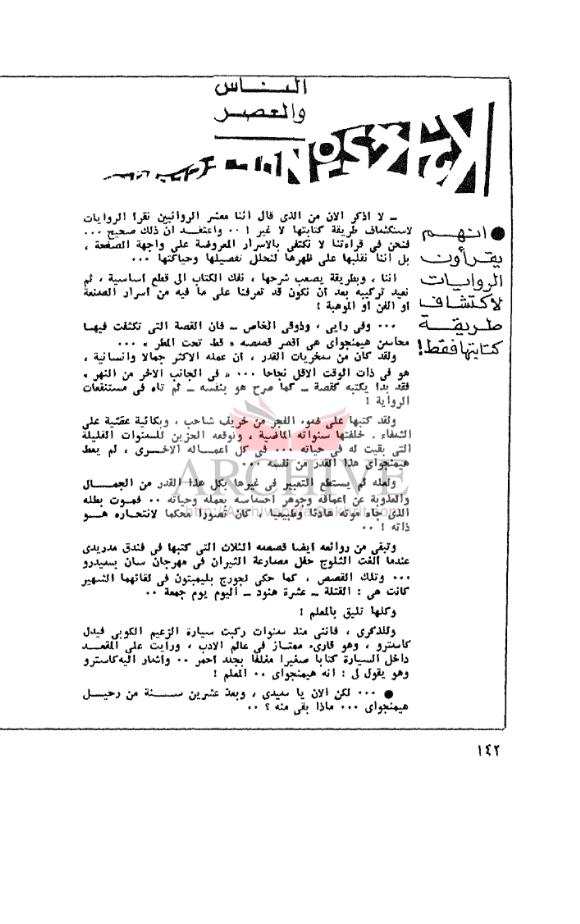 الناس
والعصر
● انهم
يقرأون
الروايات
لاكتشاف
طريقة
كتابتها فقط!
ــ لا أذكر الان من الذى قال اننا معشر الروائيين نقرأ الروايات
لاستكشاف طريقة كتابتها لا غير ! ٠٠ واعتقد ان ذلك صحيح ٠٠٠
فنحن فى قراءتنا لا نكتفى بالاسرار المعروضة على واجهة الصفحة ،
بل اننا نقلبها على ظهرها لنحلل تفصيلها وحياكتها ٠٠٠
اننا ، وبطريقة يصعب شرحها ، نفك الكتاب الى قطع اساسية ، ثم
نعيد تركيبه بعد ان نكون قد تعرفنا على ما فيه من اسرار الصنعة
أو الفن أو الموهبة !
٠٠٠ وفى رايى ، وذوقى الخاص ــ فان القصة التى تكثفت فيها
محاسن هيمنجواى هى اقصر قصصه « قط تحت المطر » ٠٠٠
ولقد كان من سخريات القدر ، ان عمله الاكثر جمالا وانسانية ،
هو فى ذات الوقت الاقل نجاحا ٠٠٠ « فى الجانب الاخر من النهر »
فقد بدا يكتبه كقصة ــ كما صرح هو بنفسه ــ ثم تاه فى مستنقعات
الرواية !
ولقد كتبها على ضوء الفجر من خريف شاحب ، وبكائية عقلية على
الشفاء . خلفتها سنواته الماضية ، وتوقعه الحزين للسنوات القليلة
التى بقيت له فى حياته ٠٠٠ فى كل اعماله الاخرى ، لم يعط
هيمنجواى هذا القدر من نفسه ٠٠
ولعله لم يستطع التعبير فى غيرها بكل هذا القدر من الجمال
والعذوبة عن اعماقه وجوهر احساسه بعمله وحياته ٠٠ فموت بطله
الذى جاء موته هادئا وطبيعيا ، كان تصورا محكما لانتحاره هو
ذاته ! ٠٠
وتبقى من روائعه ايضا قصصه الثلاث التى كتبها فى فندق مدريدى
عندما الغت الثلوج حفل مصارعة الثيران فى مهرجان سان يسيدرو
٠٠٠ وتلك القصص ، كما حكى لجورج بليمبتون فى لقائهما الشهير
كانت هى : القتلة ــ عشرة هنود ــ اليوم يوم جمعة ٠٠
وكلها تليق بالمعلم !
وللذكرى ، فاننى منذ سنوات ركبت سيارة الزعيم الكوبى فيدل
كاسترو ، وهو قارىء ممتاز فى عالم الادب ، ورايت على المقعد
داخل السيارة كتابا صغيرا مغلفا بجلد احمر ٠٠ واشار اليه كاسترو
وهو يقول لى : انه هيمنجواى ٠٠ المعلم !
● ٠٠٠ لكن الان يا سيدى ، وبعد عشرين سنة من رحيل
هيمنجواى ٠٠٠ ماذا بقى منه ؟ ٠٠
١٤٢
ARCHIVE